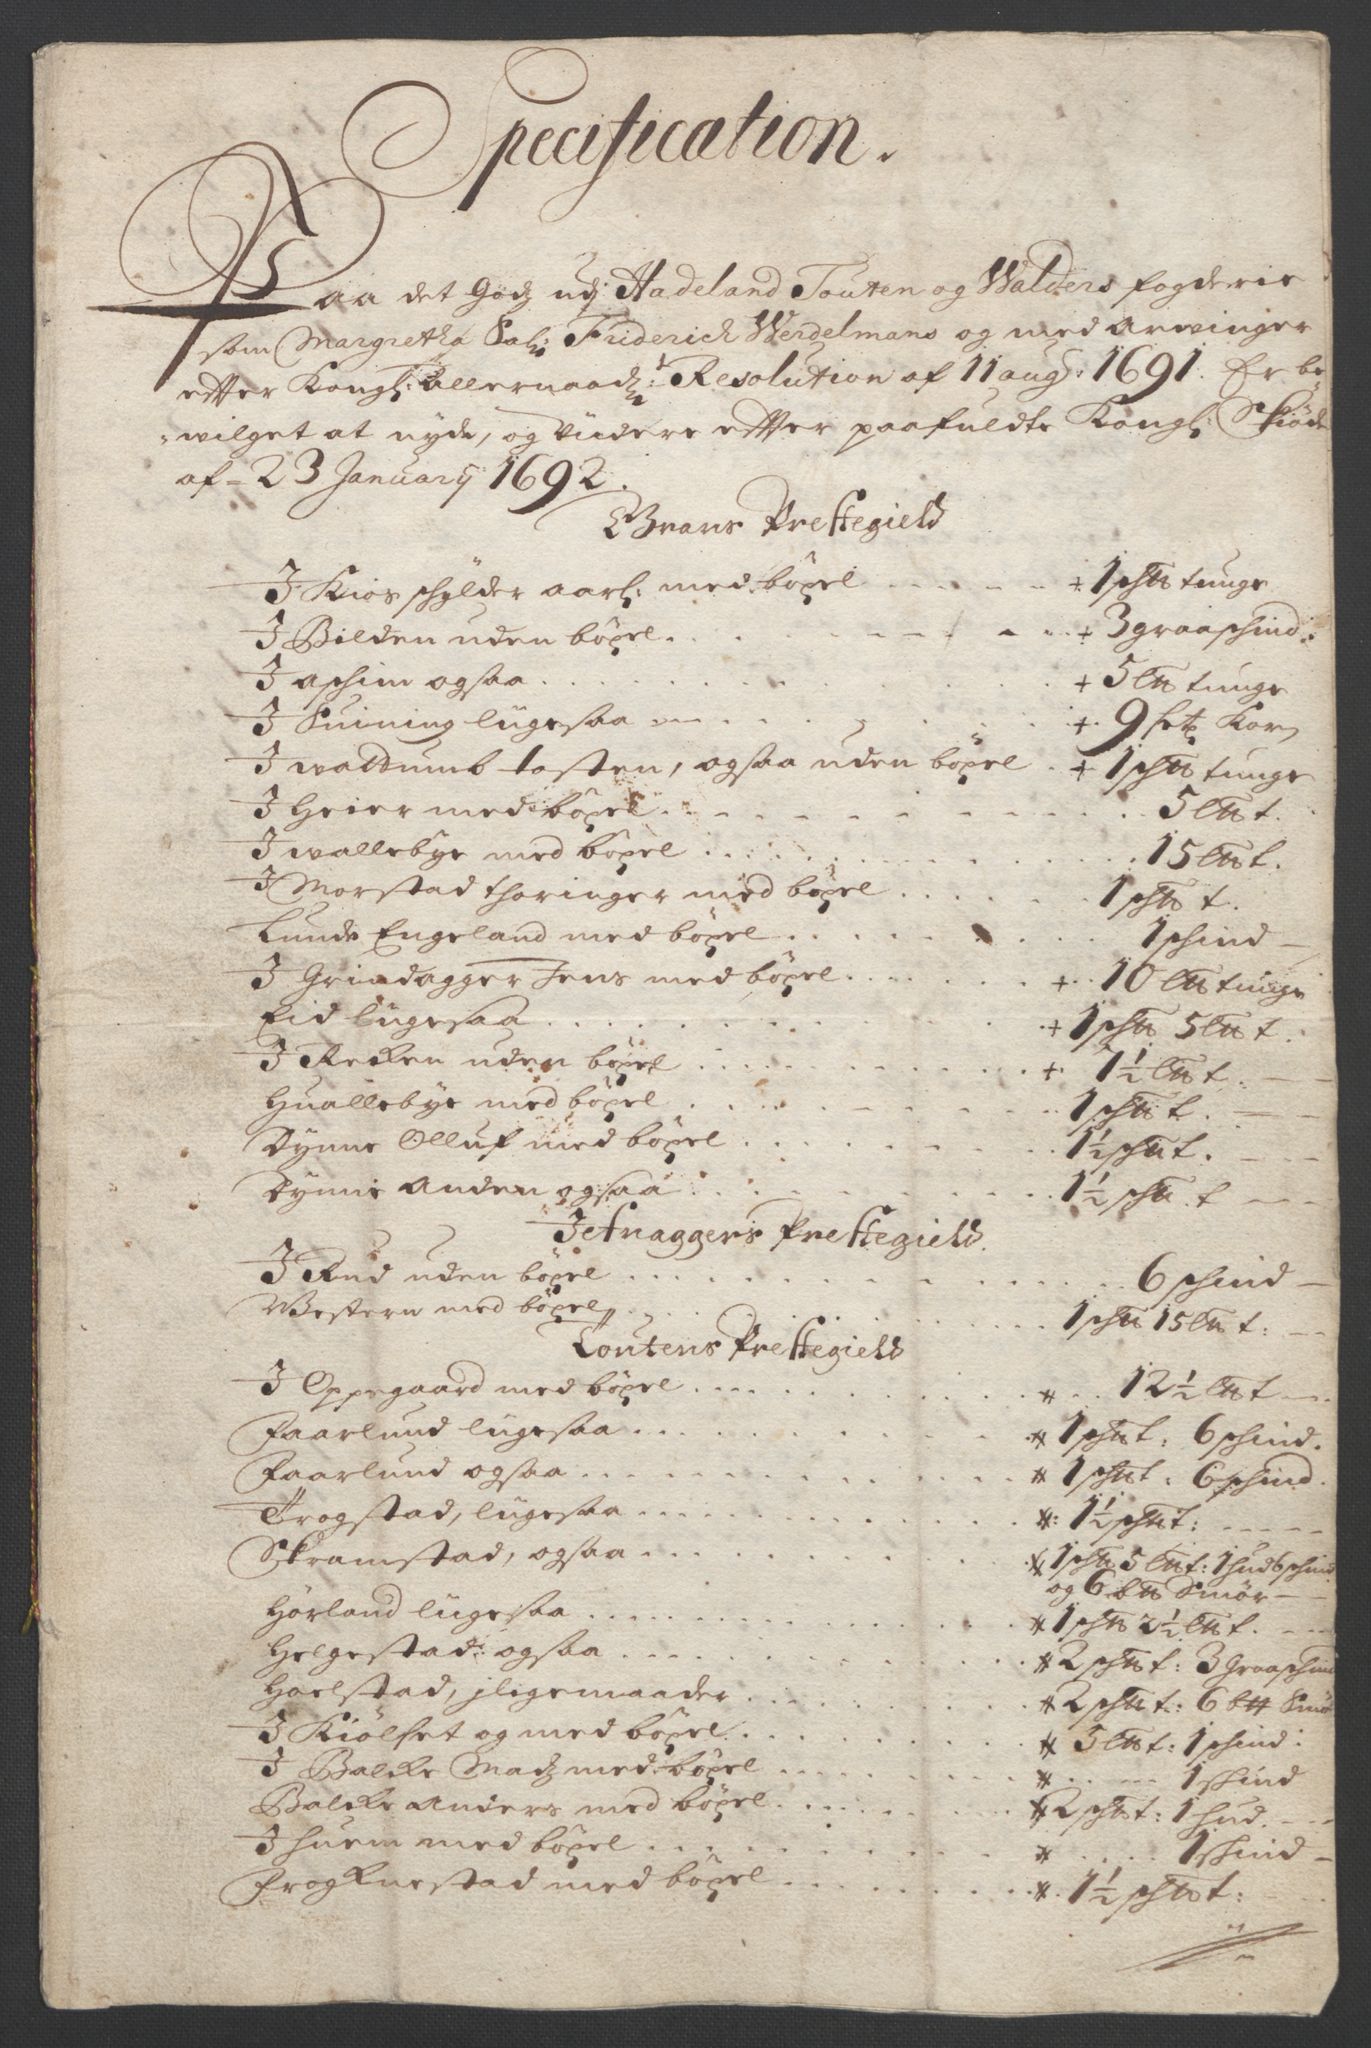 Specification.
Paa det Godz udj Hadeland Touten og Walders fogderie
som Margretha Sal: Friderich Werdelmans og med arvinger
efter Kongl: allernaadz: Resolution af 11 aug: 1691. Er be-
-wilget at nyde, og Videre efter paafuldte Kongl: Skiøde
af - 23 January 1692.
Grans Prestegield
J Kios schylder aarl: med böxel + 1 schtt tunge
J Bilden uden böxel + 3 graaschind:
J aschim ogsaa + 5 ltt tunge
J Suining liigesaa + 9 setz Korn
J waldumb tosten, ogsaa uden böxel + 1 schtt tunge
J Heier med böxel 5 ltt t.
J wallebye med böxel 15 ltt t.
J Morstad thoringer med böxel 1 schtt t.
Lunde Engeland med böxel 1 schind
J Grindagger Jens med böxel + 10 ltt tunge
Eid liigesaa + 1 schtt 5 ltt t.
J Recken uden böxel + 1½ ltt t.
Huallebye med böxel 1 schtt t.
Dynne Olluf med böxel 1½ schtt t.
Dynne anden ogsaa 1½ schtt t
Jefnaggers Prestegield.
J Rud uden böxel 6 schind
Western med böxel 1 schtt 15 ltt t:
Toutens Prestegield
J Oppegaard med böxel * 12½ ltt t
Faarlund liigesaa * 1 schtt t: 6 schind.
Faarlund ogsaa * 1 schtt t: 6 schind.
Trogstad, liigesaa * 1½ schtt t:
Skramstad, ogsaa * 1 schtt 5 ltt t: 1 hud 6 schind
og 6 btt Smör
Hörland liigesaa * 1 schtt 2½ ltt t.
Helgestad: ogsaa * 2 schtt t: 3 graaschind
Hoelstad, jligemaader * 2 schtt t: 6 btt Smör
J Kiölset og med böxel * 5 ltt t: 1 schind:
J Balcke Madz med böxel * 1 schind
Balcke anders med böxel * 2 schtt t: 1 hud.
J huem med böxel * 1 schind
Frognestad med böxel * 1½ schtt t: